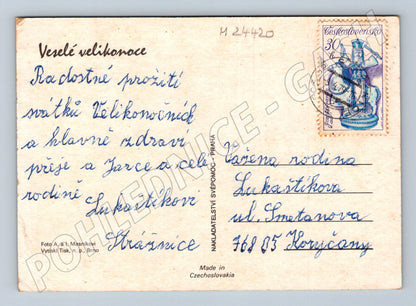 M 24420
Veselé velikonoce
Radostné prožití
svátků Velikonočních
a hlavně zdraví
přeje a Jarce a celé
rodině
Lukaštíkovi
Strážnice
Foto A. a I. Mlasníkovi
Vytiskl Tisk, n. p., Brno
NAKLADATELSTVÍ SVÉPOMOC - PRAHA
Made in
Czechoslovakia
Československo
30
Vážena rodina
Lukaštíkova
ul. Smetanova
768 05 Koryčany
POHLEDNICE